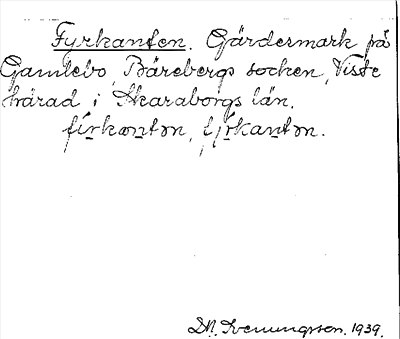 Fyrkanten. Gärdesmark på
Gamlebo, Bärebergs socken, Viste
härad i Skaraborgs län.
fi̱rkantən,
D.N. Svenungsson. 1939.